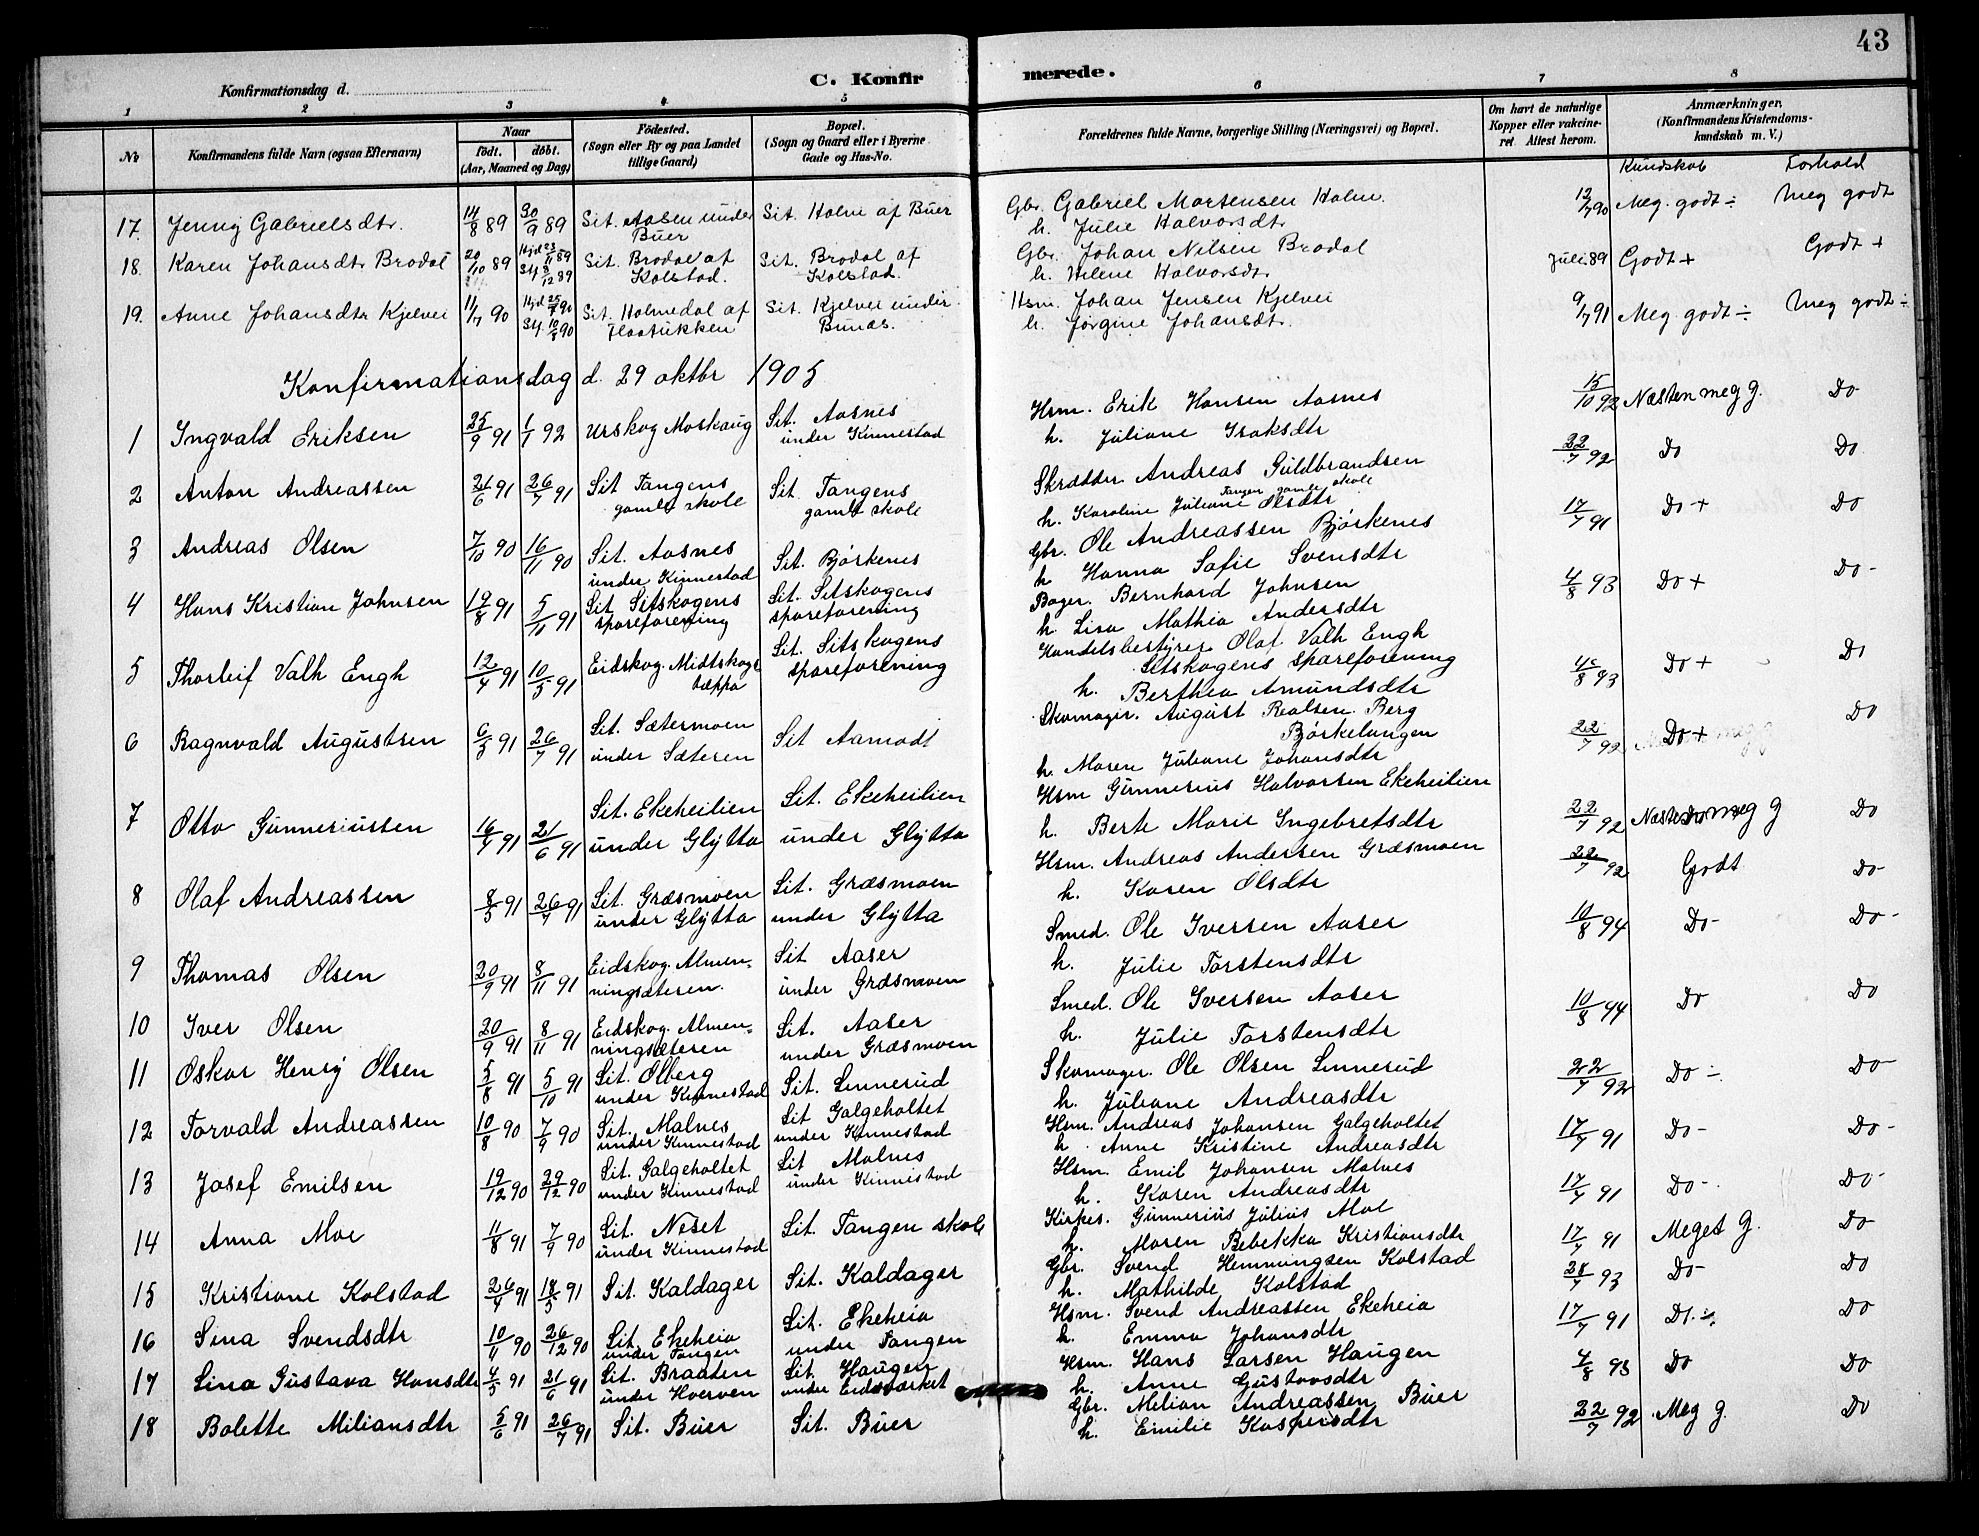 43
Konfirmationsdag d.
C. Konfirmerede.
1 2 3 4 5 6 7 8
No
Konfirmandens fulde Navn (ogsaa Efternavn)
Naar
født. døbt.
(Aar, Maaned og Dag)
Fødested.
(Sogn eller By og paa Landet
tillige Gaard)
Bopæl.
(Sogn og Gaard eller i Byerne
Gade og Hus-No.
Forældrenes fulde Navne, borgerlige Stilling (Næringsvei) og Bopæl.
Om havt de naturlige
Kopper eller vakcine-
ret Attest herom.
Anmærkninger,
(Konfirmandens Kristendoms-
kundskab m. V.)
Kundskab Forhold
17. Jenny Gabrielsdtr. 14/8 89 30/9 89 Sit. Aasen under Sit. Holm af Buer Gbr. Gabriel Mortensen Holm. 12/7 90 Meg. godt ÷ Meg godt
Buer h. Julie Halvorsdtr
18. Karen Johansdtr Brodal 20/10 89 Hjd 23/11 89 Sit. Brodal af Sit. Brodal af Gbr. Johan Nilsen Brodal Juli 89 Godt + Godt +
St. 8/12 89 Kolstad. Kolstad. h. Helene Halvorsdtr
19. Anne Johansdtr Kjelvei 11/7 90 Hjd 25/7 90 Sit. Holmedal af Sit. Kjelvei under Hsm. Johan Jensen Kjelvei 9/7 91 Meg godt ÷ Meg godt ÷
St. 10/8 90 Flaatukken Bunæs. h. Jørgine Johansdtr.
Konfirmationsdag d. 29 oktbr 1905
1 Ingvald Eriksen 25/9 91 1/1 92 Urskog Moskaug Sit. Aasnes Hsm. Erik Hansen Aasnes 15/10 92 Næsten meg g. Do
under Kinnestad h. Juliane Isaksdtr
2 Anton Andreassen 21/6 91 26/7 91 Sit Tangens Sit. Tangens Skrædder Andreas Guldbrandsen 22/7 92 Do Do
gamle skole gamle skole Tangen gamle skole
h. Karoline Juliane Olsdtr
3 Andreas Olsen 7/10 90 16/11 90 Sit. Aasnes Sit. Bjørkenes Gbr. Ole Andreassen Bjørkenes 17/7 91 Do + Do
under Kinnestad h Hanna Sofie Svensdtr
4 Hans Kristian Johnsen 19/8 91 5/11 91 Sit Sitskogens Sit. Sitskogens Bager. Bernhard Johnsen 4/8 93 Do + Do -
spareforening spareforening h. Lisa Mathea Andersdtr
5 Thorleif Valh Engh 12/4 91 10/5 91 Eidskog. Midtskogs Sit. Sitskogens Handelsbestyrer Olaf Valh Engh 4/8 93 Do + Do
tæppa spareforening Sitskogens spareforening
h. Berthea Amundsdtr
6 Ragnvald Augustsen 6/3 91 26/7 91 Sit. Sætermoen Sit Aamodt Skomager. August Realsen Berg 22/7 92 Do + Do
under Sæteren Bjørkelangen
h. Maren Juliane Johansdtr
7 Otto Gunneriussen 16/4 91 21/6 91 Sit. Ekeheilien Sit. Ekeheilien Hsm Gunnerius Halvorsen Ekeheilien 22/7 92 Næsten meg g Do
under Glytta under Glytta h. Berte Marie Ingebretsdtr
8 Olaf Andreassen 8/5 91 26/7 91 Sit. Græsmoen Sit. Græsmoen Hsm. Andreas Andersen Græsmoen 22/7 92 Godt Do -
under Glytta under Glytta h. Karen Olsdtr
9 Thomas Olsen 20/9 91 8/11 91 Eidskog. Almen- Sit Aaser Smed. Ole Iversen Aaser 10/8 94 Do - Do -
ningsæteren. under Græsmoen h. Julie Torstensdtr
10 Iver Olsen 20/9 91 8/11 91 Eidskog. Almen- Sit. Aaser Smed. Ole Iversen Aaser 10/8 94 Do Do
ningsæteren under Græsmoen h. Julie Torstensdtr
11 Oskar Henry Olsen 5/8 91 5/10 91 Sit. Olberg Sit. Linnerud Skomager. Ole Olsen Linnerud 22/7 92 Do ÷ Do -
under Kinnestad h. Juliane Andreasdtr
12 Torvald Andreassen 10/8 90 7/9 90 Sit. Malnes Sit Galgeholtet Hsm. Andreas Johansen Galgeholtet 17/7 91 Do - Do -
under Kinnestad under Kinnestad h. Anne Kristine Andreasdtr
13 Josef Emilsen 19/12 90 29/12 90 Sit. Galgeholtet Sit Malnes Hsm. Emil Johansen Malnes 17/7 91 Do - Do -
under Kinnestad under Kinnestad h. Karen Andreasdtr
14 Anna Moe 11/8 91 7/9 90 Sit. Neset Sit. Tangen skole Kirkes. Gunnerius Julius Moe 17/7 91 Meget g. Do
under Kinnestad h. Maren Rebekka Kristiansdtr
15 Kristiane Kolstad 26/4 91 18/5 91 Sit. Kaldager Sit. Kaldager Gbr. Svend Hemmingsen Kolstad 28/7 93 Do - Do
h. Mathilde Kolstad
16 Lina Svendsdtr 10/11 90 26/12 90 Sit. Ekeheia Sit. Ekeheia Hsm. Svend Andreassen Ekeheia 17/7 91 Do ÷ Do
under Tangen under Tangen h. Emma Johansdtr
17 Lina Gustava Hansdtr 4/5 91 21/6 91 Sit. Braaten Sit. Haugen Hsm. Hans Larsen Haugen 4/8 93 Do Do
under Hverven under Eidsværket h. Anne Gustavsdtr
18 Bolette Miliansdtr 5/6 91 26/7 91 Sit. Buer Sit. Buer Gbr. Milian Andreassen Buer 22/7 92 Meg g. Do
h. Emilie Kaspersdtr